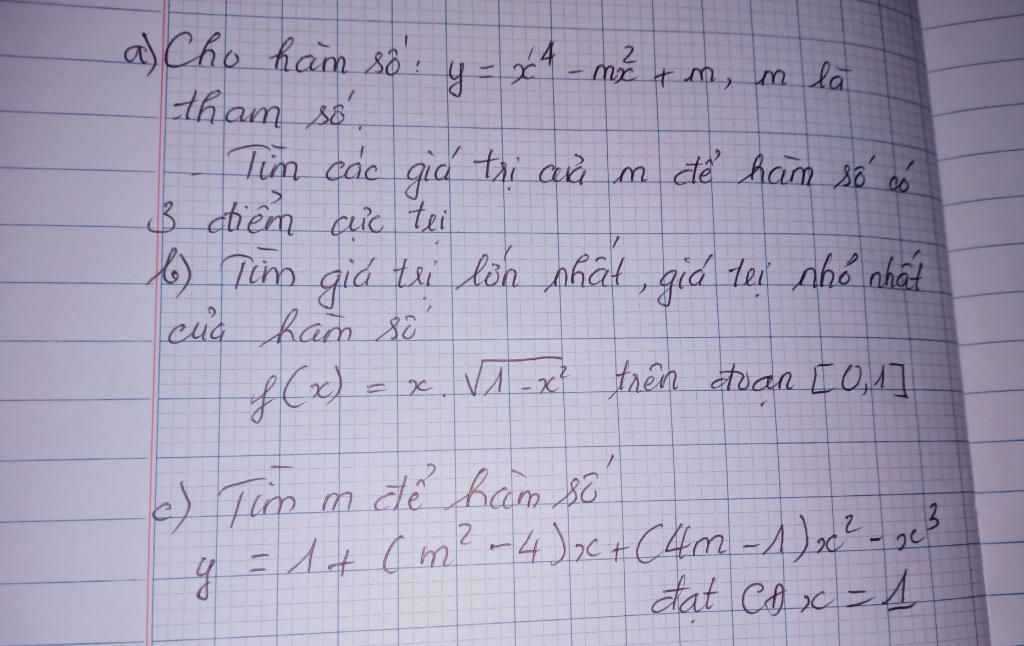 a) Cho hàm số: y = x⁴ - mx² + m, m là
tham số.
- Tìm các giá trị của m để hàm số có
3 điểm cực trị
b) Tìm giá trị lớn nhất, giá trị nhỏ nhất
của hàm số
f(x) = x. √(1-x²) trên đoạn [0,1]
c) Tìm m để hàm số
y = 1 + (m² - 4)x + (4m - 1)x² - x³
đạt CĐ x = 1